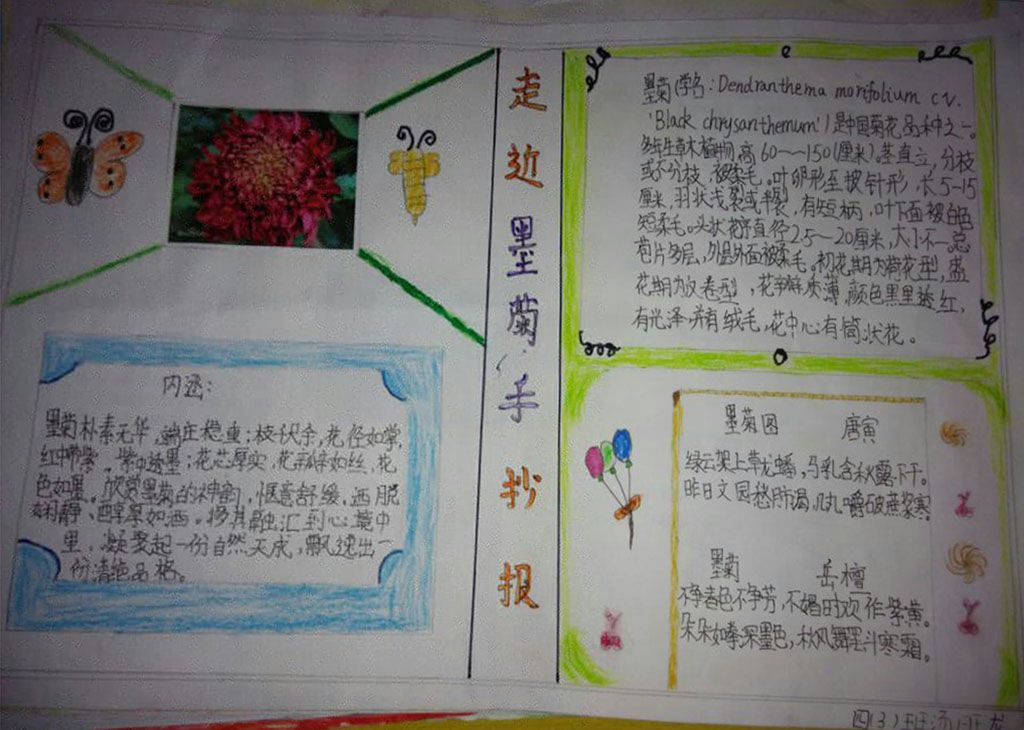 走近墨菊手抄报
内涵:
墨菊朴素无华,端庄稳重;枝伏余,花径如掌,
红中带紫,紫中透墨;花芯厚实,花瓣如丝,花
色如墨。欣赏墨菊的神韵,惬意舒缓、洒脱
闲静、醇厚如酒。将其融汇到心境中
里,凝聚起一份自然天成,飘逸出一
份清绝品格。
墨菊(学名:Dendranthema morifolium cv.
'Black chrysanthemum')是中国菊花品种之一。
多年生草本植物,高60~150(厘米)。茎直立,分枝
或不分枝,被柔毛。叶卵形至披针形,长5-15
厘米,羽状浅裂或半裂,有短柄,叶下面被白色
短柔毛。头状花序直径2.5~20厘米,大小不一。总
苞片多层,外层外面被柔毛。初花期为荷花型,盛
花期为反卷型,花瓣质薄,颜色黑里透红,
有光泽,并有绒毛,花中心有筒状花。
墨菊图 唐寅
绿云架上草龙蟠,马乳含秋露下干。
昨日文园愁肺渴,几丸嚼破蔗浆寒。
墨菊 岳檀
不争春色不争芳,不媚时欢作紫黄。
朵朵如奉深墨色,秋风舞罢斗寒霜。
四(3)班汤